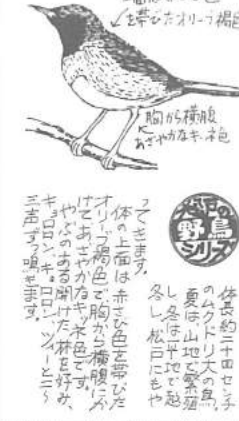 を帯びたオリーブ褐色
胸から横腹
あざやかなキツネ色
野鳥
シリーズ
体長約二十四センチ
のムクドリ大の鳥。
夏は山地で繁殖
し、冬は平地で越
冬し、松戸にもや
ってきます。
体の上面は赤さび色を帯びた
オリーブ褐色で胸から横腹にか
けてあざやかなキツネ色です。
やぶのある開けた林を好み、
キョロロン、キョロロン、ツィーと二〜
三声ずつ鳴きます。